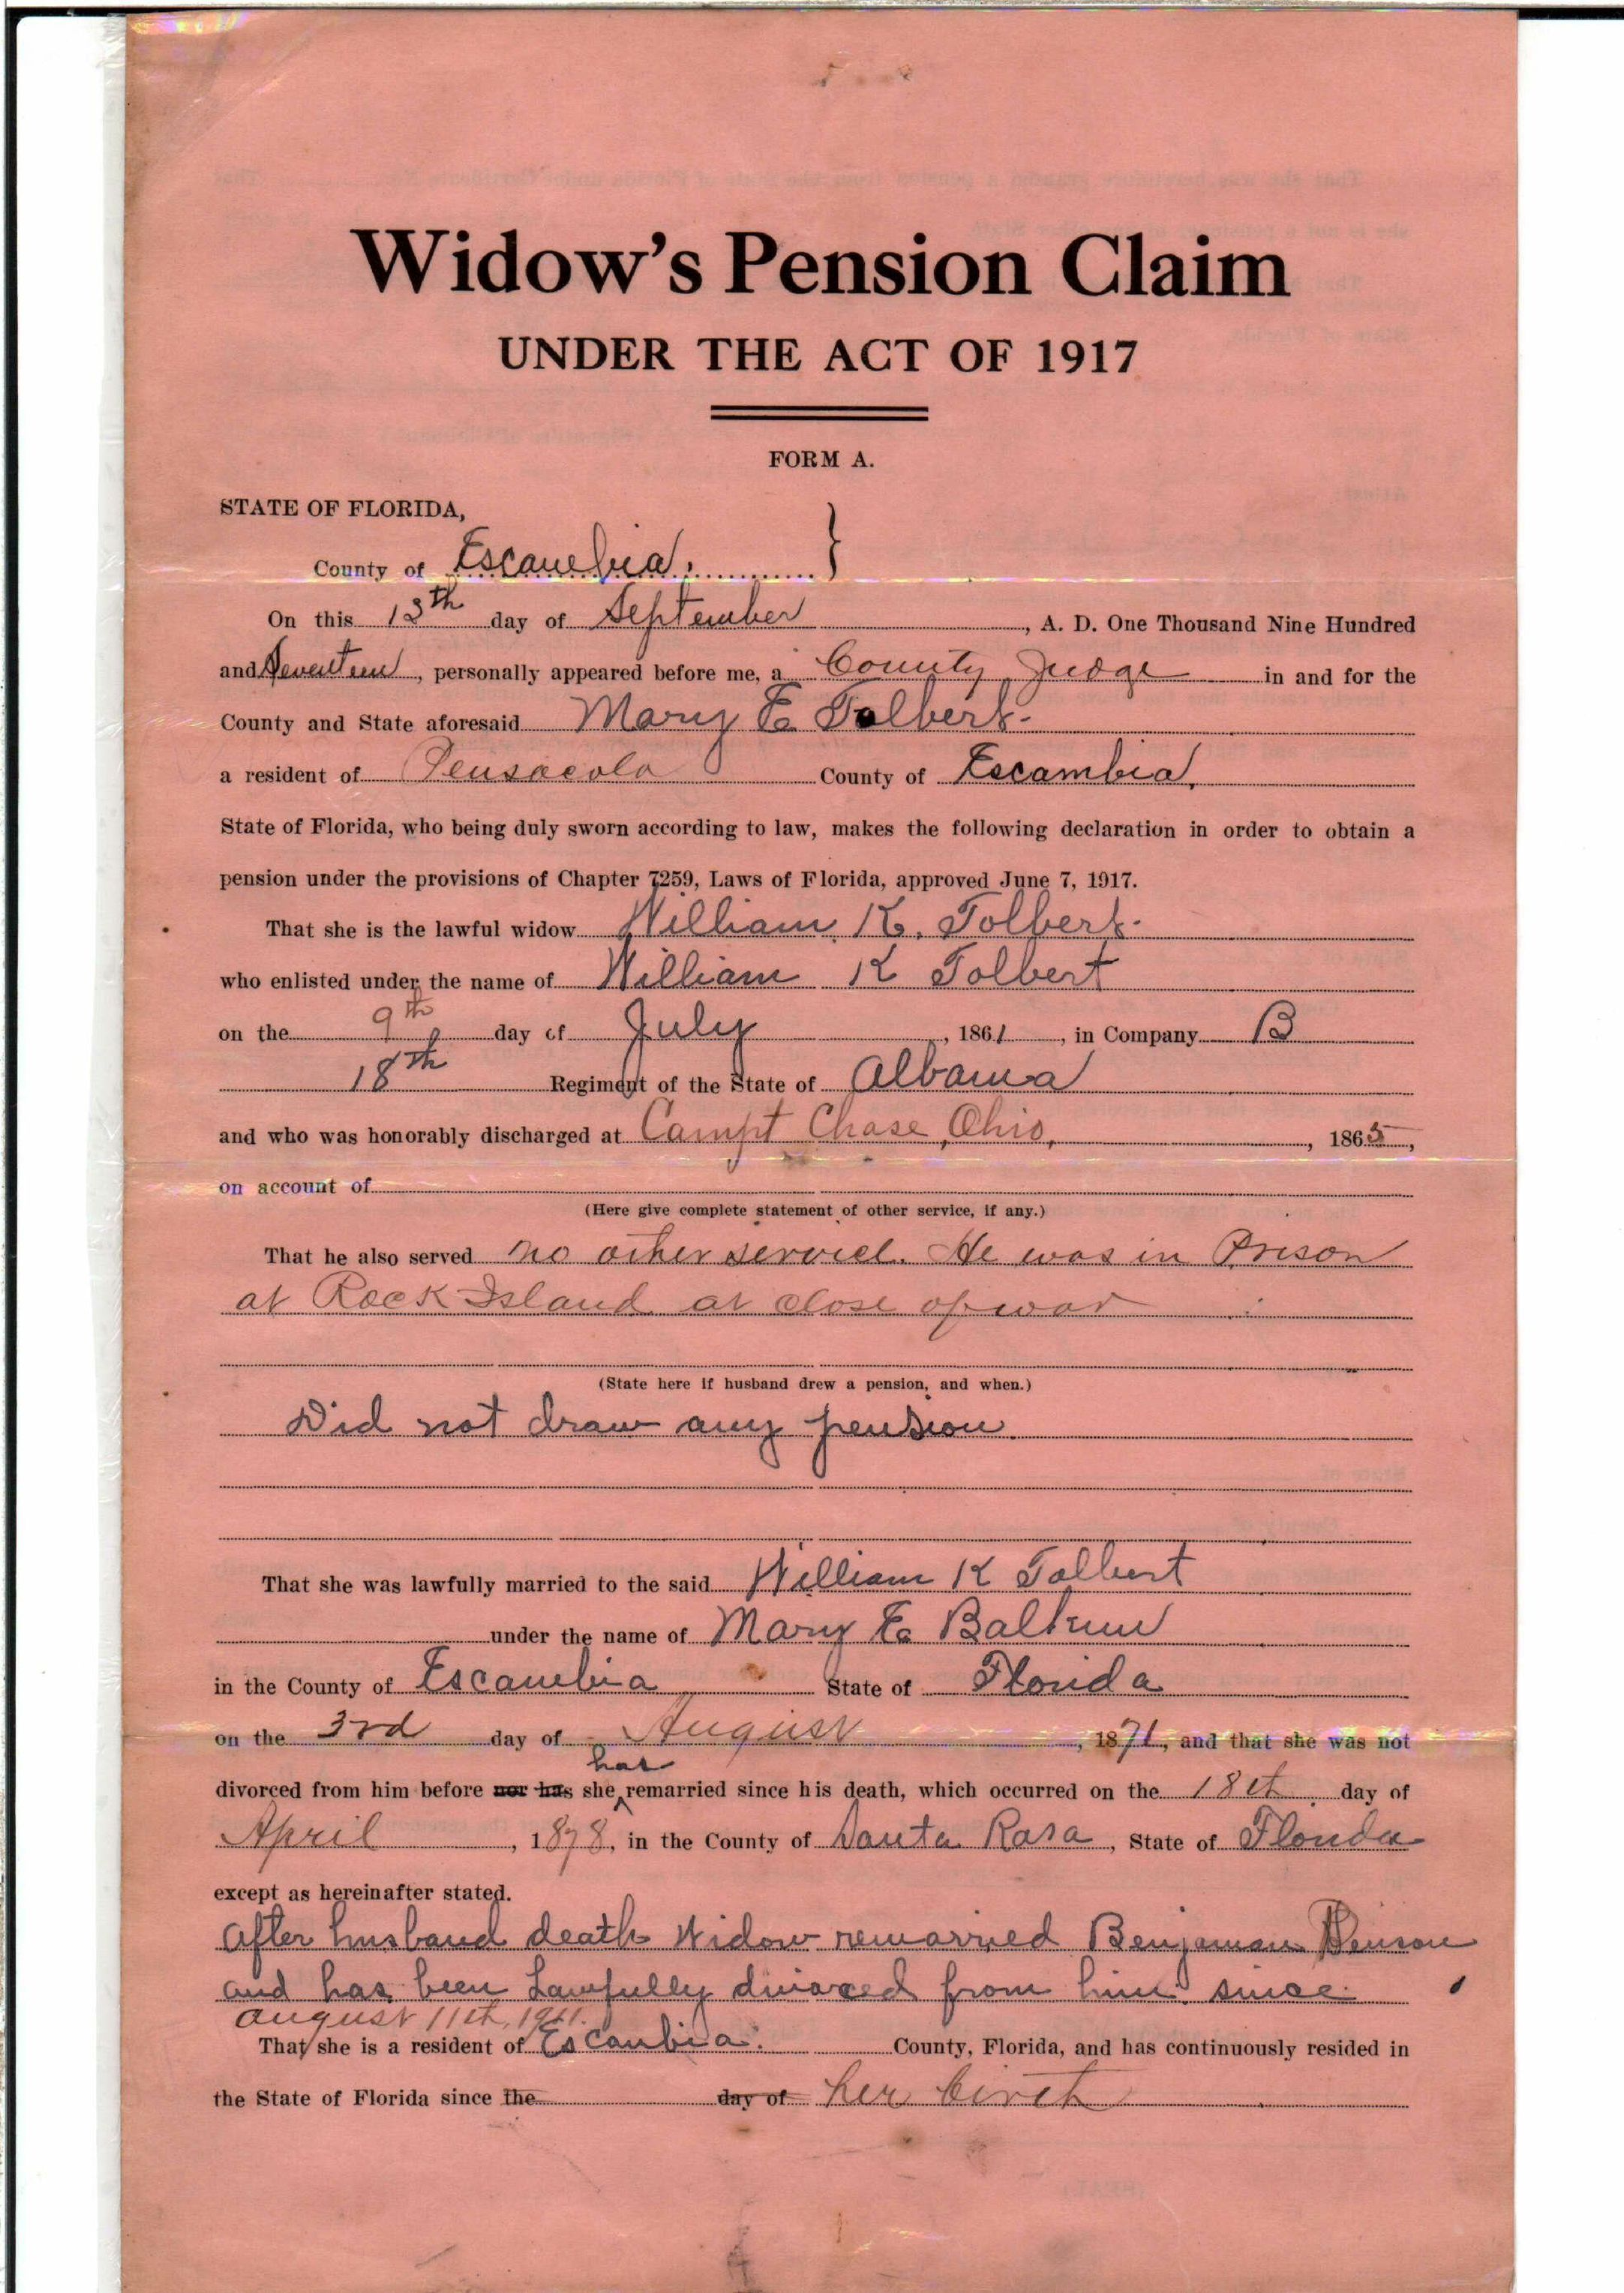 Widow's Pension Claim
UNDER THE ACT OF 1917
FORM A.
STATE OF FLORIDA,
County of Escambia
On this 13th day of September, A. D. One Thousand Nine Hundred
and Seventeen, personally appeared before me, a County Judge in and for the
County and State aforesaid Mary E Tolbert
a resident of Pensacola County of Escambia,
State of Florida, who being duly sworn according to law, makes the following declaration in order to obtain a
pension under the provisions of Chapter 7259, Laws of Florida, approved June 7, 1917.
That she is the lawful widow William K. Tolbert
who enlisted under the name of William K Tolbert
on the 9th day of July, 1861, in Company B
18th Regiment of the State of Albama
and who was honorably discharged at Campt Chase, Ohio, 1865,
on account of
(Here give complete statement of other service, if any.)
That he also served no other service. He was in Prison
at Rock Island at close of war
(State here if husband drew a pension, and when.)
Did not draw any pension
That she was lawfully married to the said William K Tolbert
under the name of Mary E
in the County of Escambia State of Florida
on the 3rd day of August, 1871, and that she was not
has
divorced from him before nor has she remarried since his death, which occurred on the 18th day of
April, 1878, in the County of Santa Rosa, State of Florida
except as hereinafter stated.
After husband death Widow remarried Benjaman Benson
and has been Lawfully divorced from him since
August 11th, 1911.
That she is a resident of Escambia County, Florida, and has continuously resided in
the State of Florida since the day of her birth